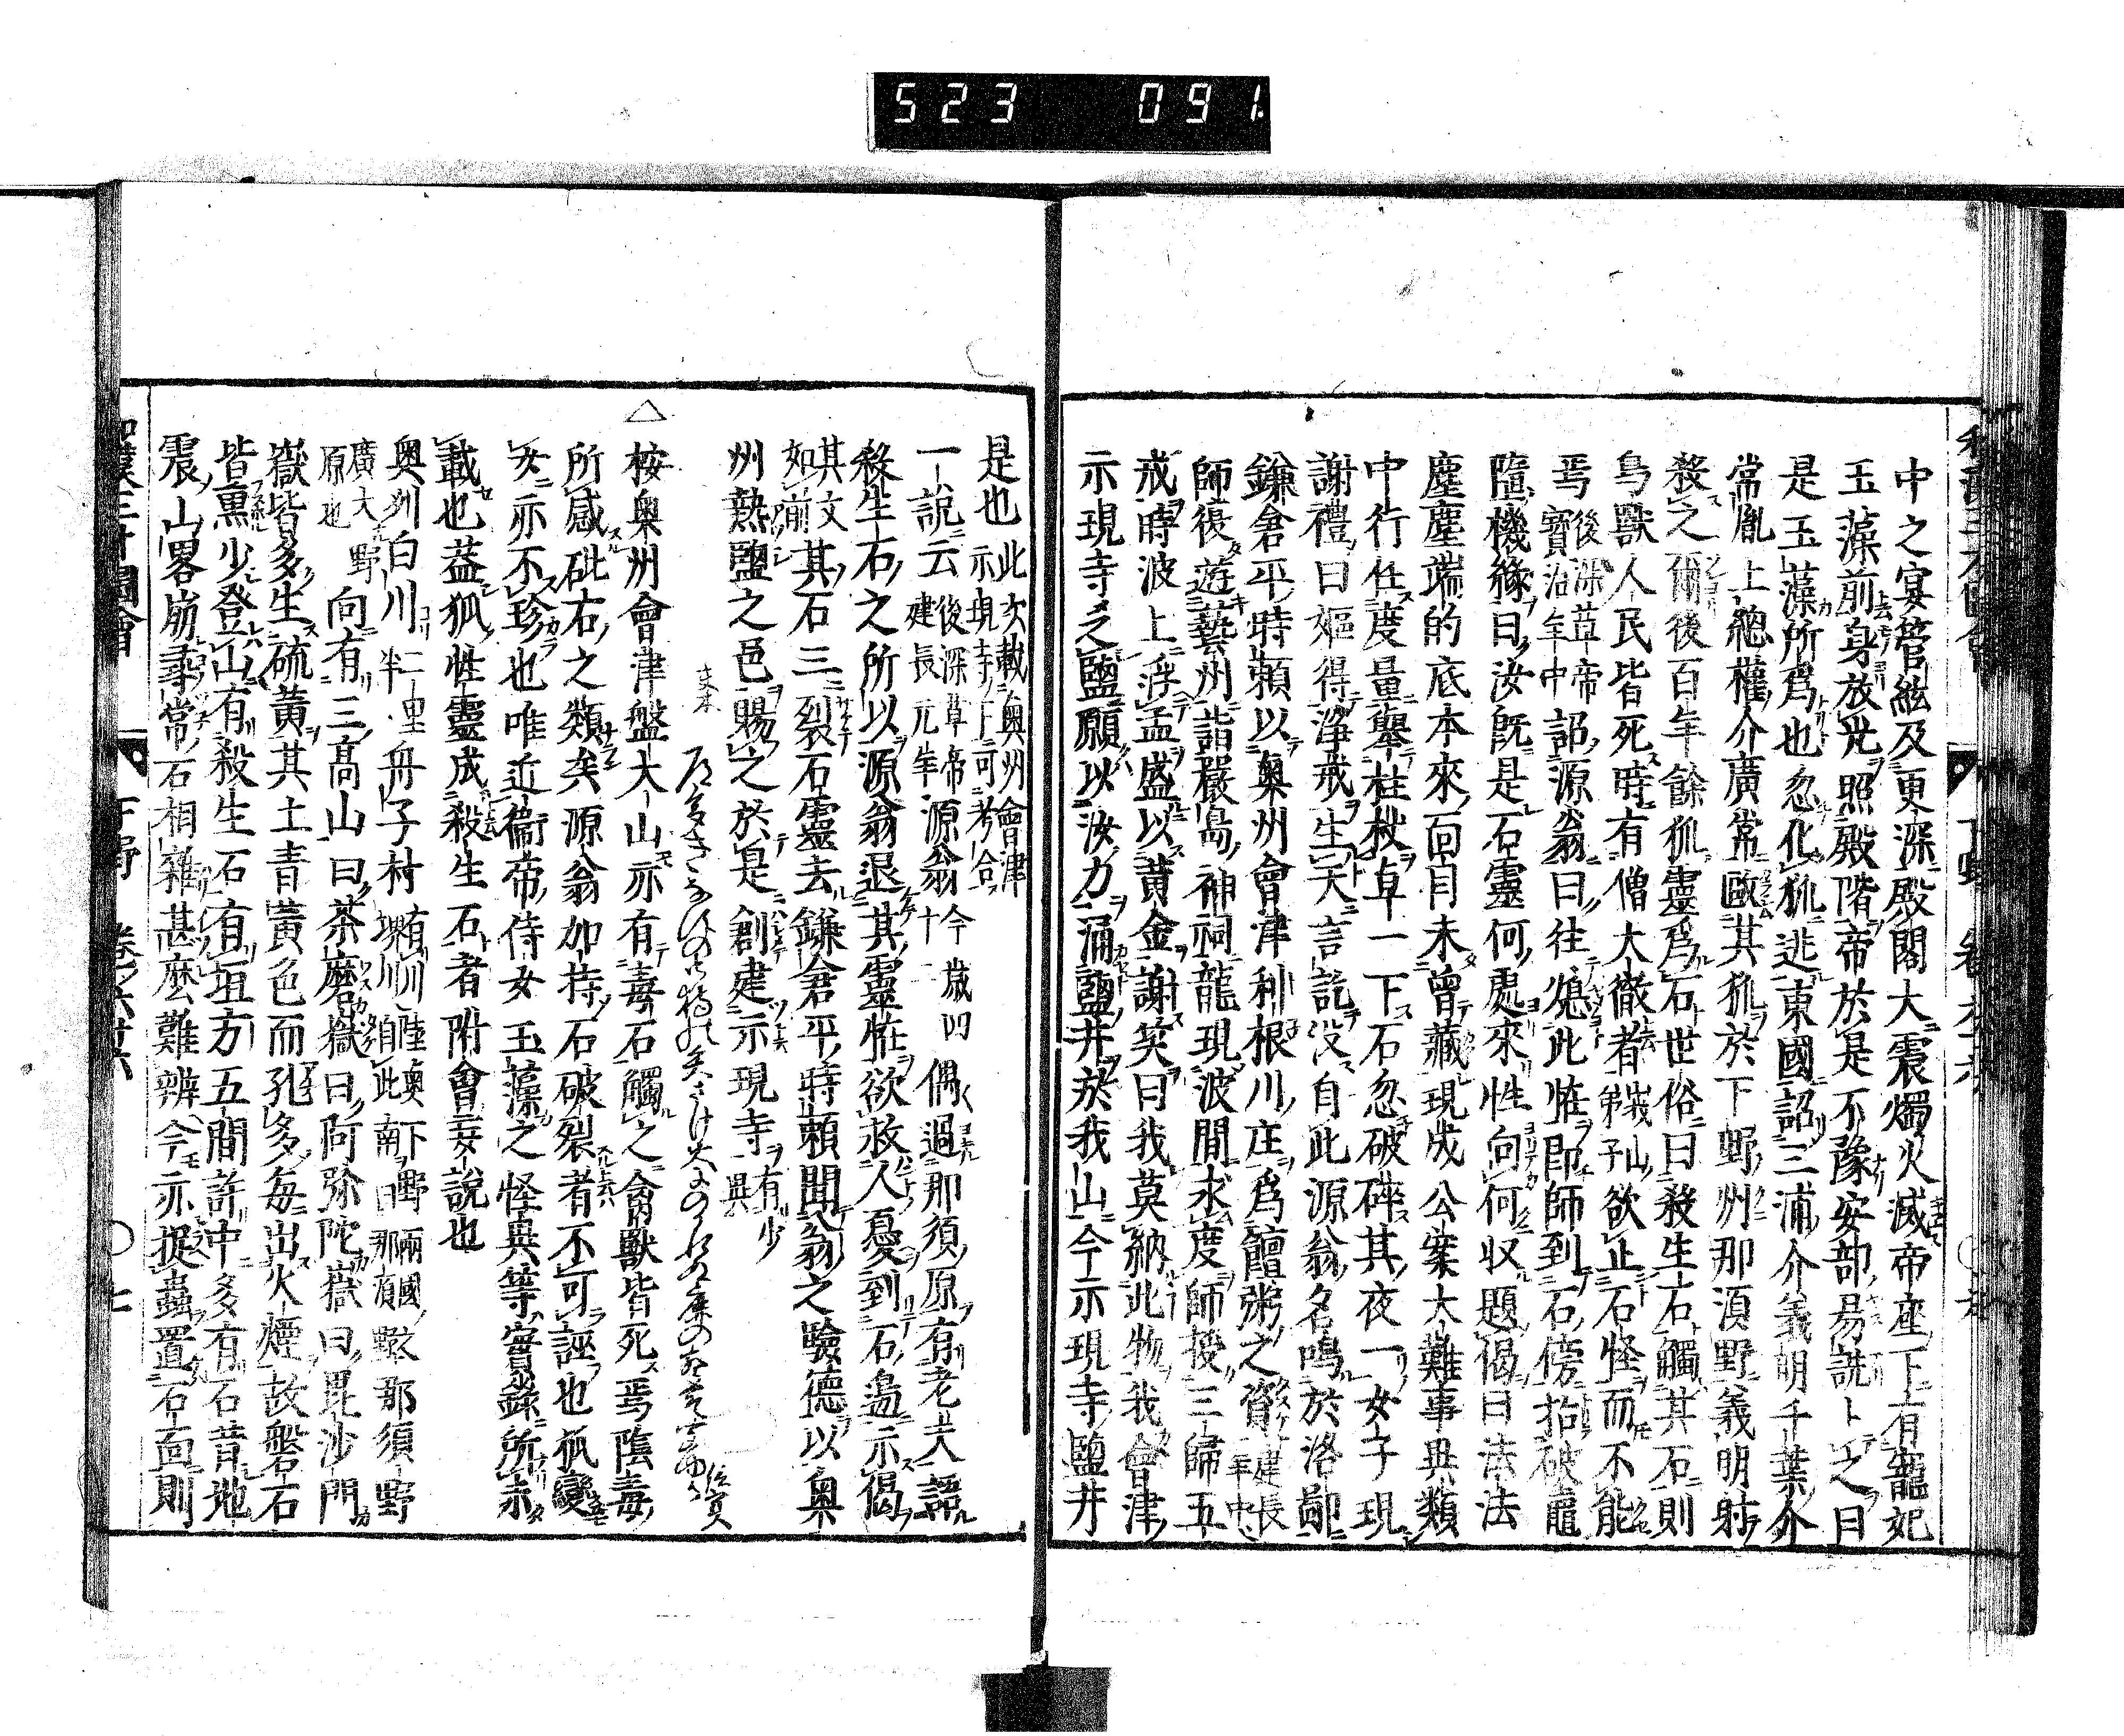 523 091.
中之宴管絃及更深殿閣大震燭火滅帝座下有寵妃
玉藻前身放光照殿階帝於是不豫安部易詵卜之曰
是玉藻所爲也忽化狐逃東國詔三浦介義明千葉介
常胤上總權介廣常毆其狐於下野州那須野義明射
殺之爾後百年餘狐靈爲石世俗曰殺生石觸其石則
鳥獸人民皆死時有僧大徹者峩山弟子欲止石怪而不能
焉後深草帝寳治年中詔源翁曰往熄此恠即師到石傍拈破竈
隨機緣曰汝既是石靈何處來性向何収題偈曰法法
塵塵端的底本來面目未曾藏現成公案大難事異類
中行任度量擧柱杖卓一下石忽破碎其夜一女子現
謝禮曰嫗得淨戒生天言訖没自此源翁名鳴於洛鄙
鎌倉平時頼以奥州會津利根川庄爲饘粥之資建長年中
師復遊藝州詣嚴島神祠龍現波間求度師授三歸五
戒時波上浮孟盛以黄金謝笑曰我莫納此物我會津
示現寺乏鹽願以汝力涌鹽井於我山今示現寺鹽井
是也此次載奥州會津示現寺下可考合
一說云後深草帝建長元年源翁今歲四十偶過那須原有老人語
殺生石之所以源翁退其靈恠欲救人憂到石邉示偈
其文如前其石三裂石靈去鎌倉平時頼聞翁之驗德以奥
州熱鹽之邑賜之於是創建示現寺有少異
△按奥州會津盤大山亦有毒石觸之禽獸皆死焉陰毒
所感砒石之類矣源翁加持石破裂者不可誣也狐變
女亦不珍也唯近衞帝侍女玉藻之怪異等實錄所未
載也葢狐性靈成殺生石者附會妄說也
奥州白川二里半舟子村有川堺川陸奥下野兩國自此南曰那須野那須野
廣大野原也向有三髙山曰茶磨嶽曰阿弥陀嶽曰毘沙門
嶽皆多生硫黄其土青黄色而孔多每出火煙故盤石
皆黒少登山有殺生石有垣方五間許中多有石昔地
震山畧崩尋常石相雜甚麽難辨今亦捉蟲置石面則
和漢三才圖會 下野 卷之六十六 ○七